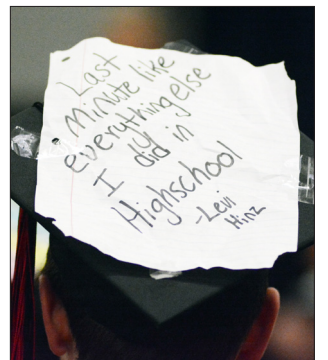 Last
Minute like
everything else
I did in
Highschool
-Levi
Hinz